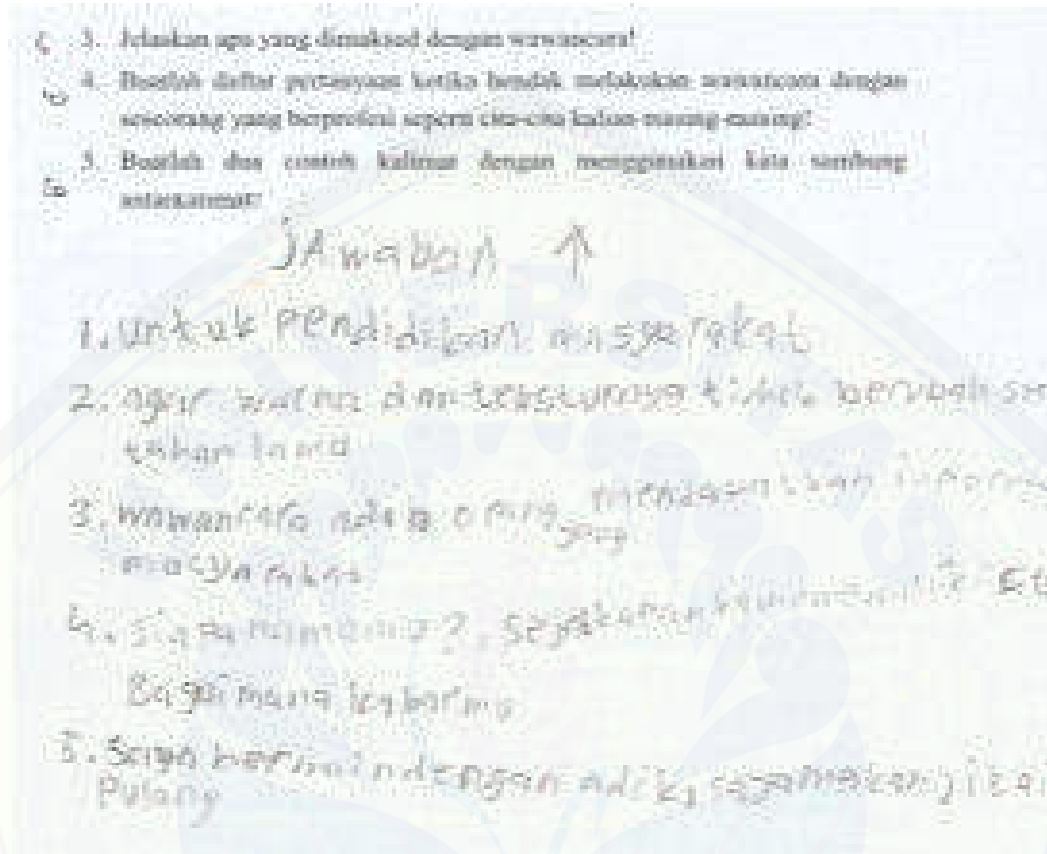 3. Jelaskan apa yang dimaksud dengan wawancara!
4. Buatlah daftar pertanyaan ketika hendak melakukan wawancara dengan
seseorang yang berprofesi seperti cita-cita kalian masing-masing!
5. Buatlah dua contoh kalimat dengan menggunakan kata sambung
antarkalimat!
JAwaban ↑
1. Untuk Pendidikan masyarakat
2. agar warna dan teksturnya tidak berubah
tahan lama
3. wawancara orang yang
masyarakat
4. Siapa namamu?, Sejak kapan
Bagaimana kabarmu
5. Saya bermain dengan adik, saya makan
Pulang